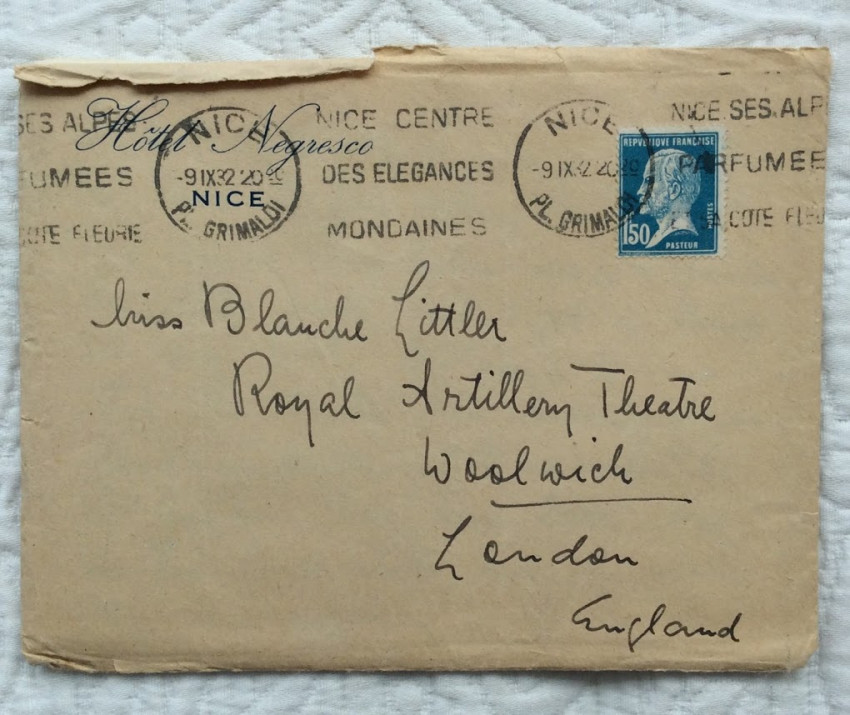 Hôtel Negresco
NICE
SES ALPES NICE NICE CENTRE NICE NICE SES ALP
FUMEES -9 IX 32 20 DES ELEGANCES -9 IX 32 20 PARFUMEE
COTE FLEURIE PL. GRIMALDI MONDAINES PL. GRIMALDI SA COTE FLEU
REPUBLIQUE FRANÇAISE
POSTES
1F50
PASTEUR
Miss Blanche Littler
Royal Artillery Theatre
Woolwich
London
England